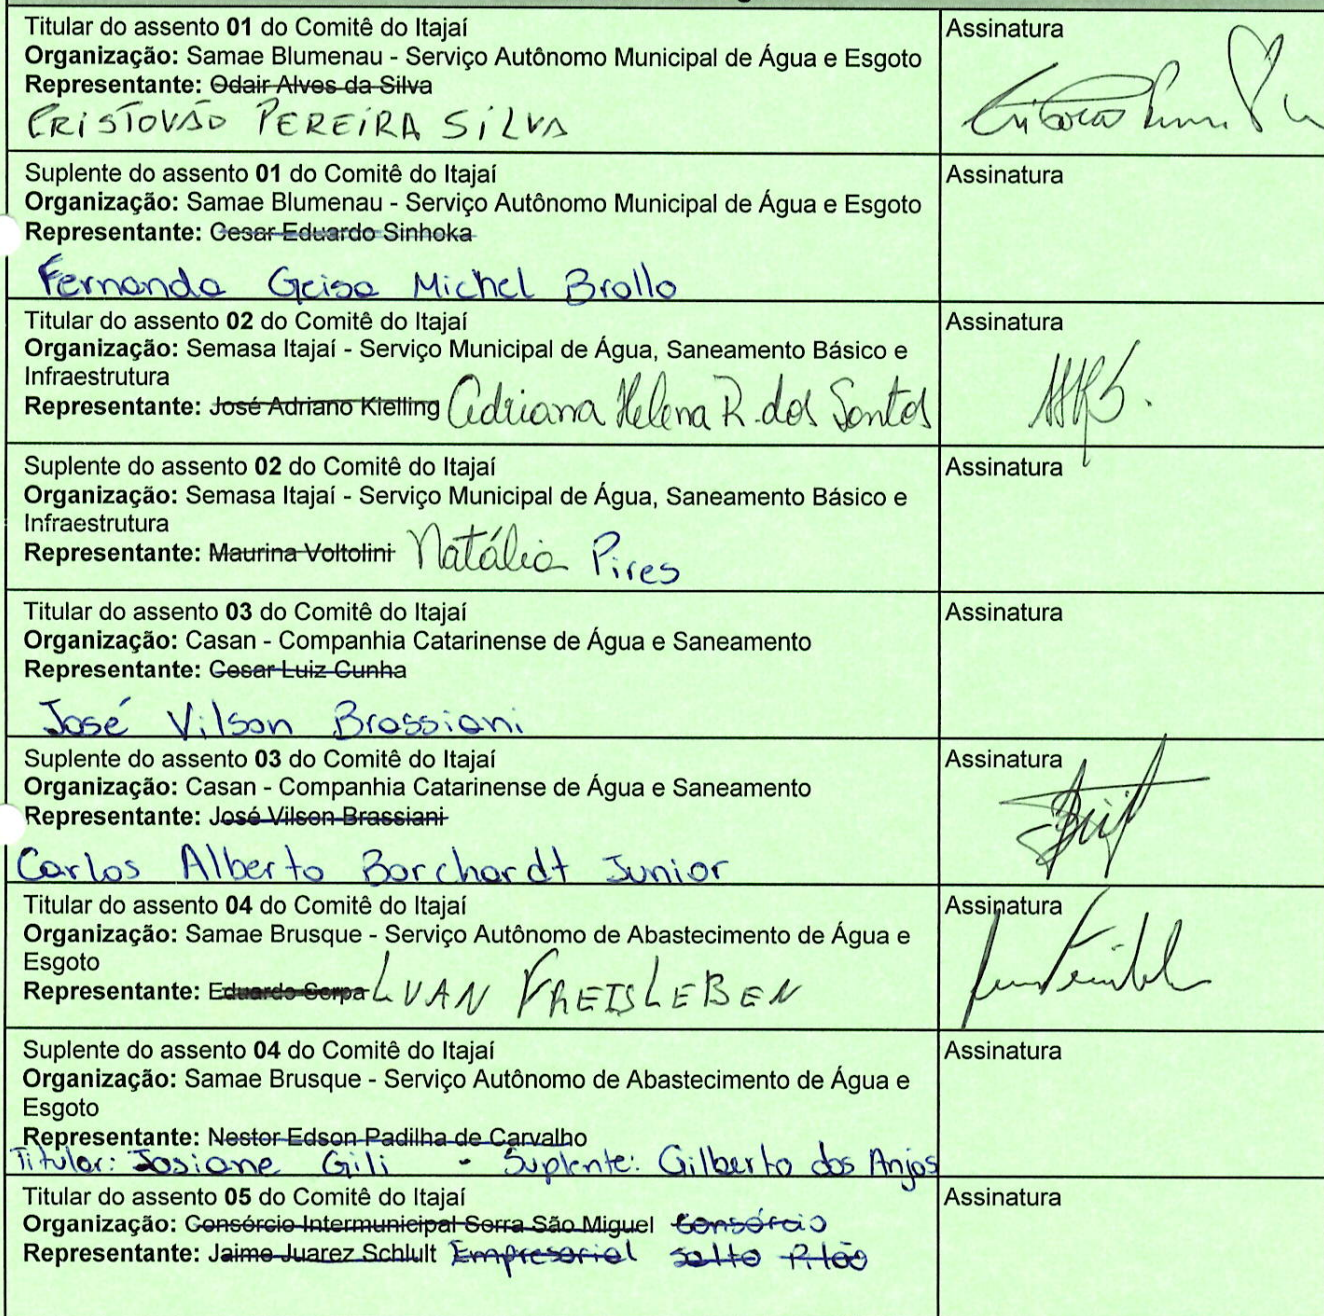 Titular do assento 01 do Comitê do Itajaí
Assinatura
Organização: Samae Blumenau - Serviço Autônomo Municipal de Água e Esgoto
Representante: Odair Alves da Silva
CRISTOVÃO PEREIRA SILVA
Suplente do assento 01 do Comitê do Itajaí
Assinatura
Organização: Samae Blumenau - Serviço Autônomo Municipal de Água e Esgoto
Representante: Cesar Eduardo Sinhoka
Fernanda Geisa Michel Brollo
Titular do assento 02 do Comitê do Itajaí
Assinatura
Organização: Semasa Itajaí - Serviço Municipal de Água, Saneamento Básico e
Infraestrutura
Representante: José Adriano Kielling Adriana Helena R. dos Santos
AHRS.
Suplente do assento 02 do Comitê do Itajaí
Assinatura
Organização: Semasa Itajaí - Serviço Municipal de Água, Saneamento Básico e
Infraestrutura
Representante: Maurina Voltolini Natália Pires
Titular do assento 03 do Comitê do Itajaí
Assinatura
Organização: Casan - Companhia Catarinense de Água e Saneamento
Representante: Cesar Luiz Cunha
José Vilson Brassiani
Suplente do assento 03 do Comitê do Itajaí
Assinatura
Organização: Casan - Companhia Catarinense de Água e Saneamento
Representante: José Vilson Brassiani
Carlos Alberto Borchardt Junior
Titular do assento 04 do Comitê do Itajaí
Assinatura
Organização: Samae Brusque - Serviço Autônomo de Abastecimento de Água e
Esgoto
Representante: Eduardo Serpa LUAN FREISLEBEN
Suplente do assento 04 do Comitê do Itajaí
Assinatura
Organização: Samae Brusque - Serviço Autônomo de Abastecimento de Água e
Esgoto
Representante: Nestor Edson Padilha de Carvalho
Titular: Josiane Gili - Suplente: Gilberto dos Anjos
Titular do assento 05 do Comitê do Itajaí
Assinatura
Organização: Consórcio Intermunicipal Serra São Miguel Consórcio
Representante: Jaime Juarez Schlult Empresarial Salto Pilão